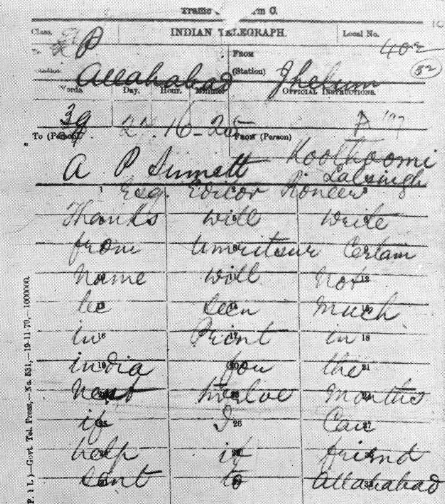 Traffic m C.
Class. P INDIAN TELEGRAPH. Local No.
To From 402
Allahabad (Station) Jhelum 52
Words. Day. Hour. Minute. OFFICIAL INSTRUCTIONS.
39 27 16-25 P '97
To (Person) From (Person) Koothoomi
A P Sinnett Lalsingh
Esq. Editor Pioneer
Thanks will write
from Umritsur Certain
Name will Not
be seen much
in Print in
india for the
Next twelve Months
if I Can
help it friend
sent to Allahabad
P. I L.—Govt. Tel. Press,—No. 531,—19-11-79,—1000000.